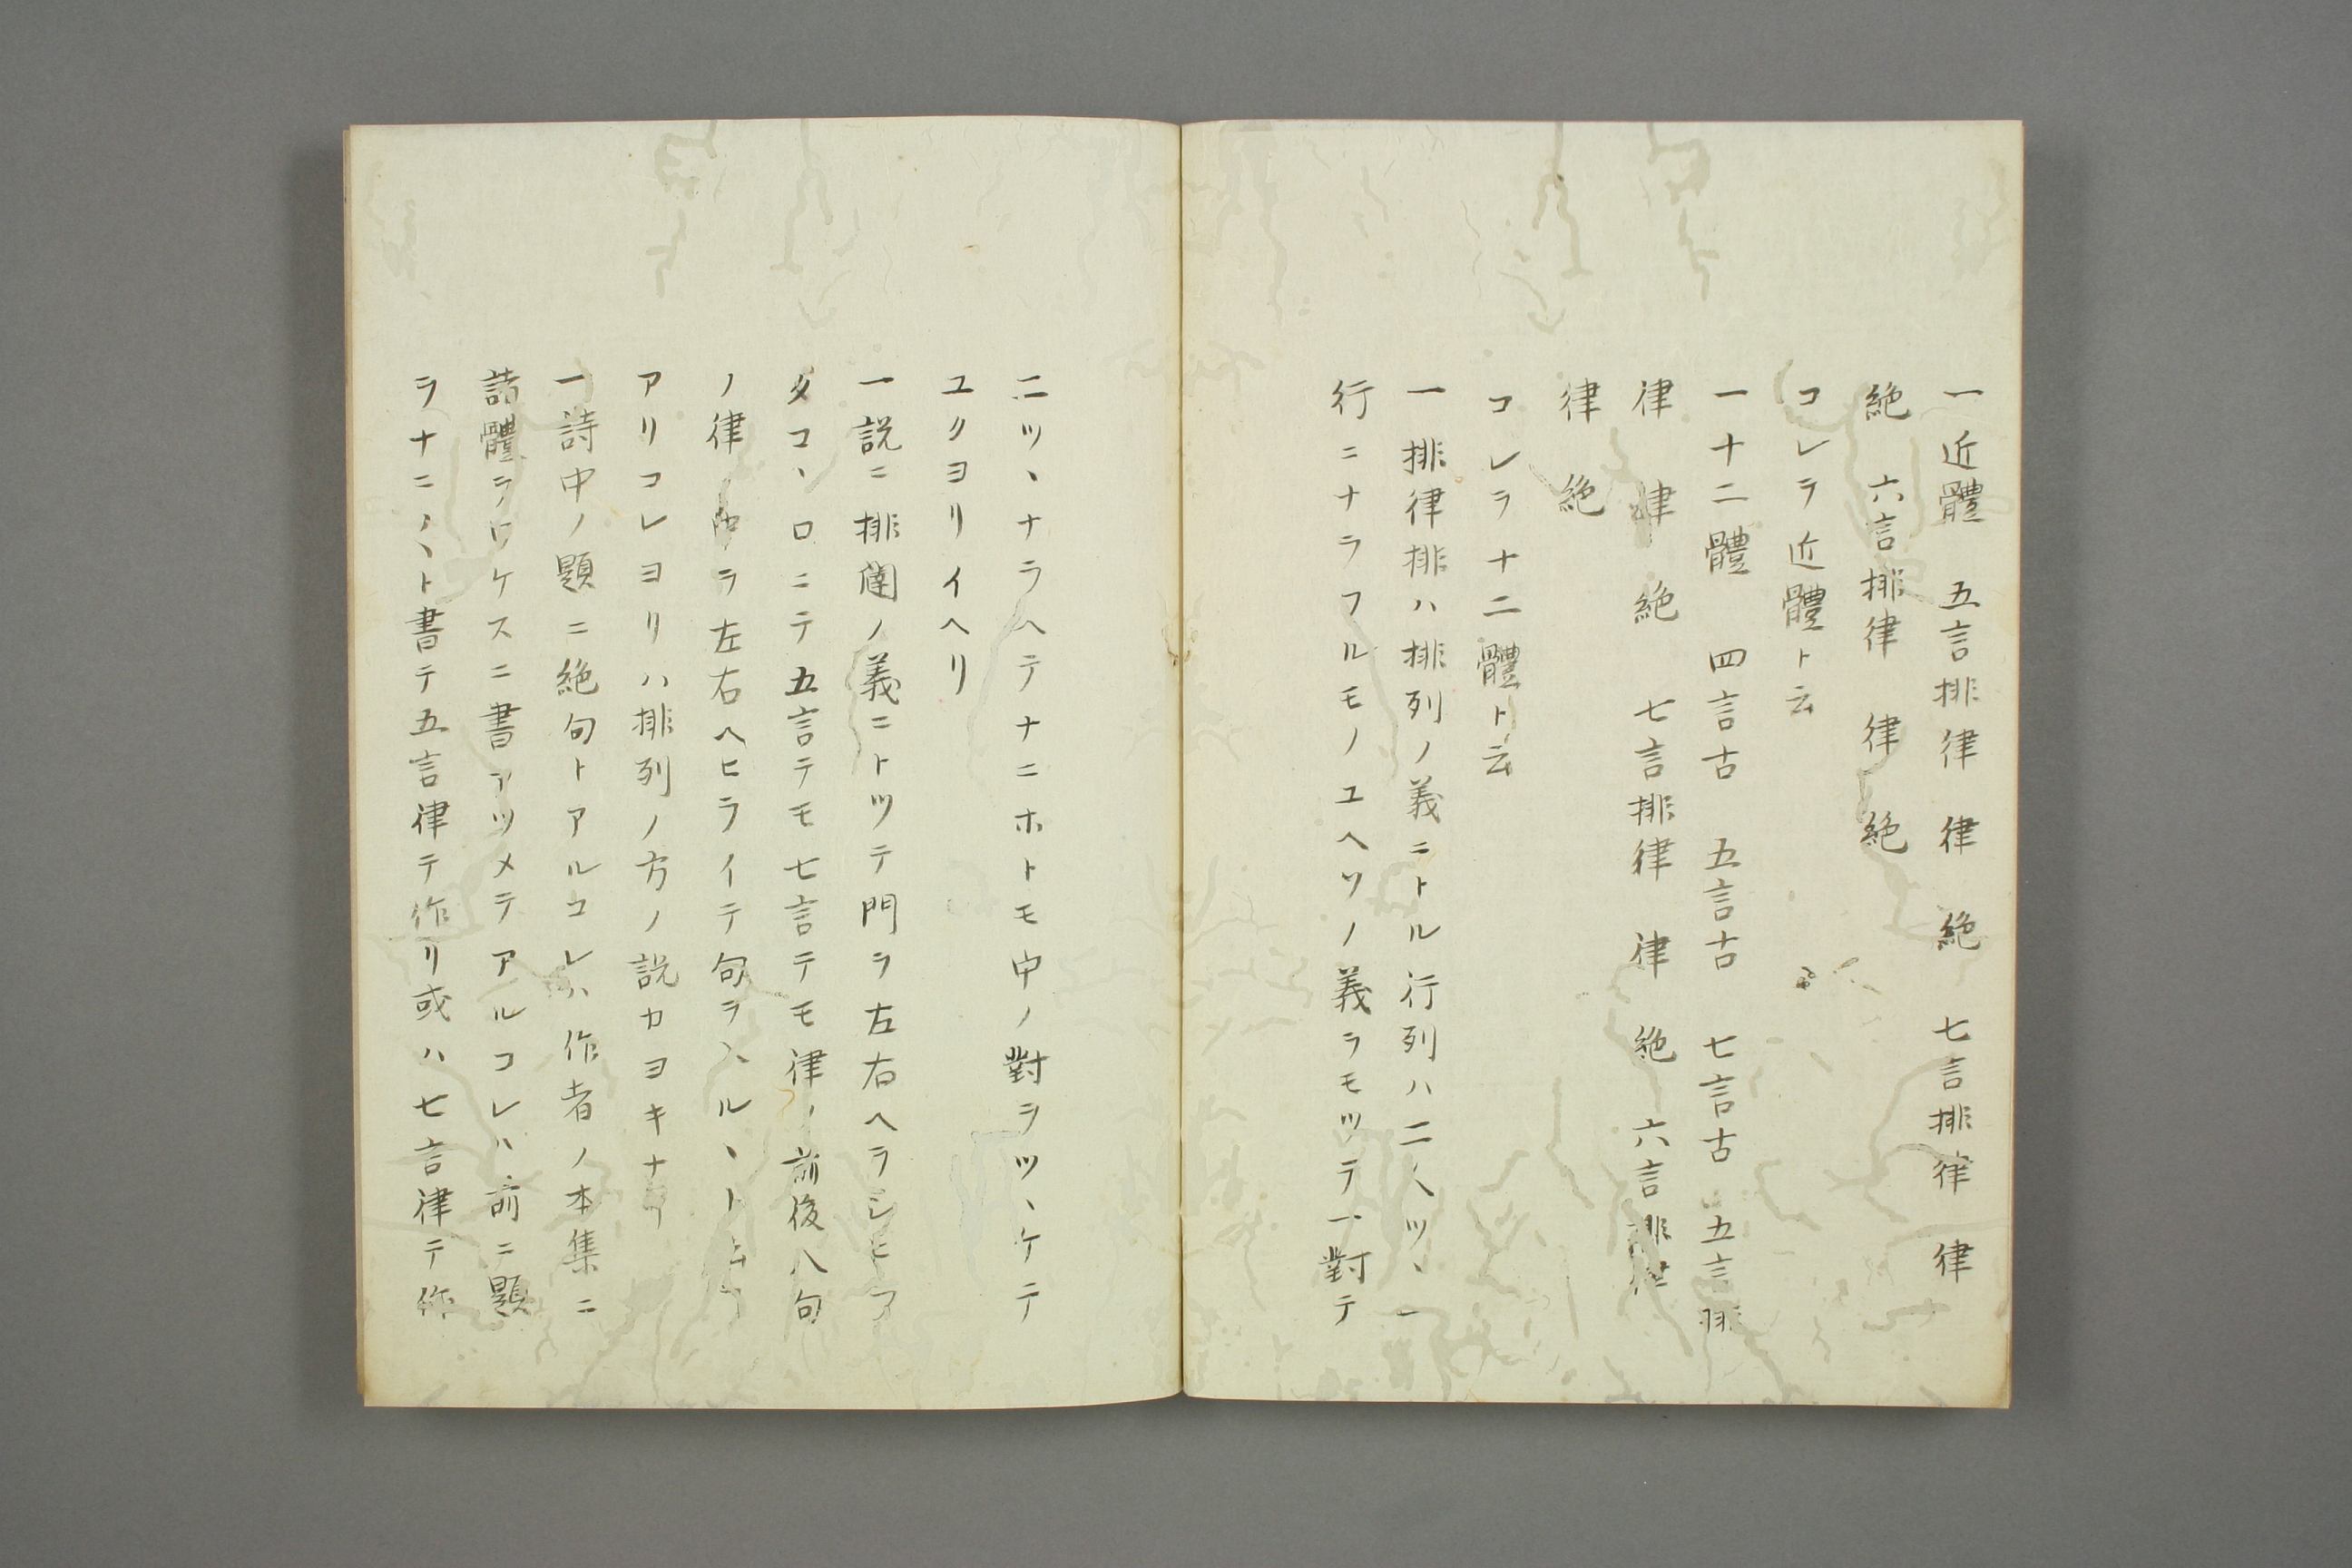 一近體　五言排律　律　絶　七言排律　律
絶　六言排律　律　絶
コレヲ近體ト云
一十二體　四言古　五言古　七言古　五言排
律　律　絶　七言排律　律　絶　六言排律
律　絶
コレヲ十二體ト云
一排律排ハ排列ノ義ニトル行列ハ二人ツヽ一
行ニナラフルモノユヘソノ義ヲモツテ一對テ
二ツヽナラヘテナニホトモ中ノ對ヲツヽケテ
ユクヨリイヘリ
一説ニ排闥ノ義ニトツテ門ヲ左右ヘヲシヒ
タコヽロニテ五言テモ七言テモ律ノ前後八句
ノ律ノ中ヲ左右ヘヒライテ句ヲ入ルヽト
アリコレヨリハ排列ノ方ノ説カヨキナリ
一詩中ノ題ニ絶句トアルコレハ作者ノ本集ニ
詩體ヲワケスニ書アツメテアルコレハ前ニ題
ヲナニノヽト書テ五言律テ作リ或ハ七言律テ作